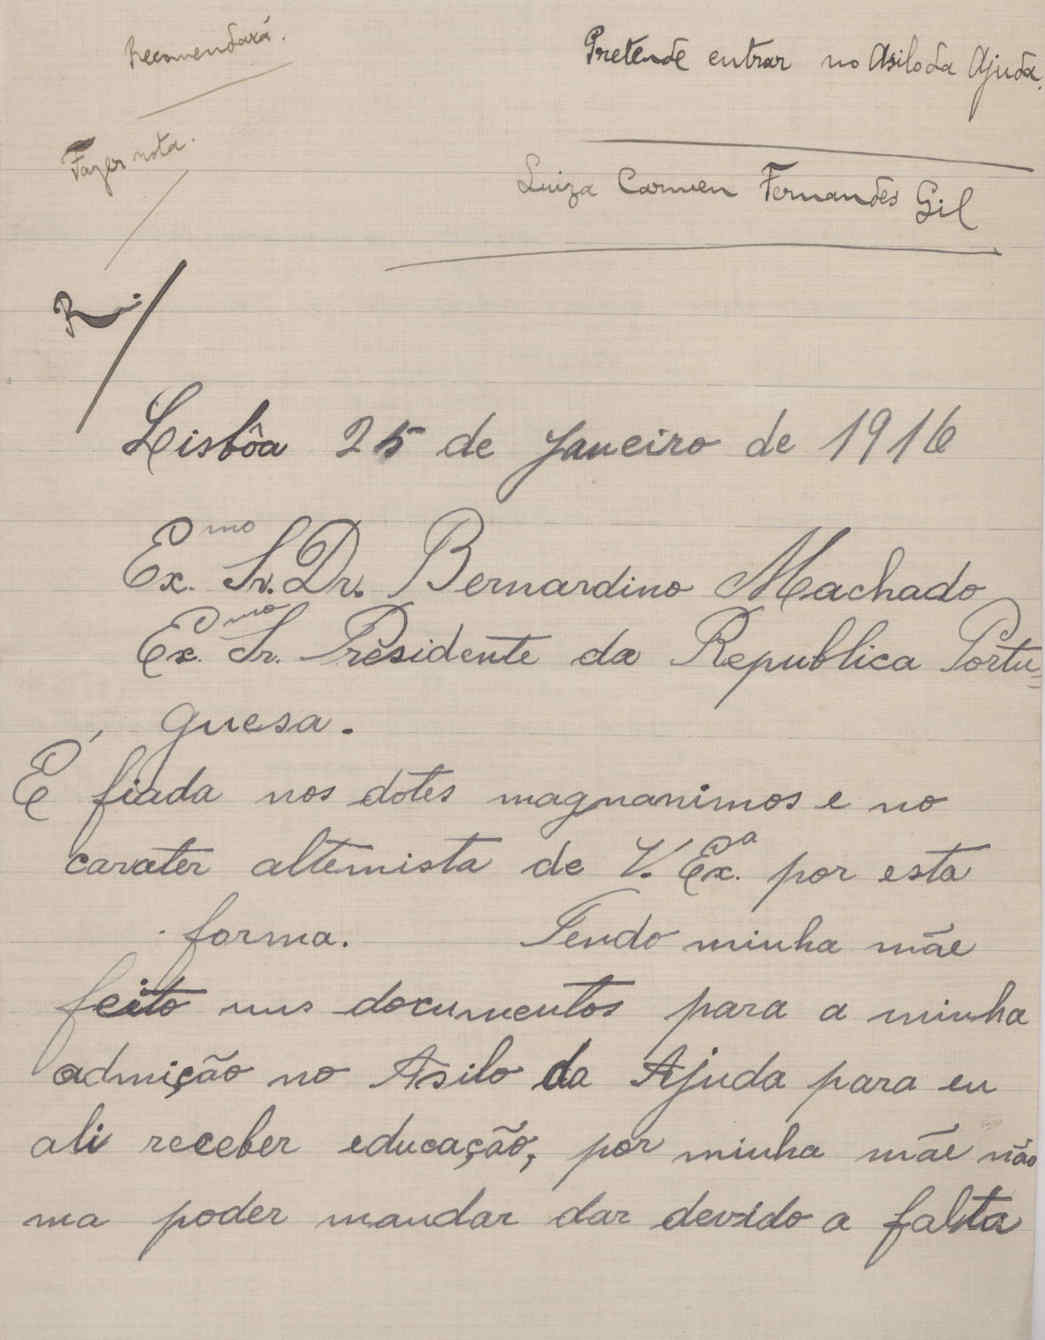 Recomendará.
Pretende entrar no Asilo da Ajuda.
Fazer nota.
Luiza Carmen Fernandes Gil
R
Lisbôa 25 de Janeiro de 1916
Ex.mo Sr. Dr. Bernardino Machado
Ex.mo Sr. Presidente da Republica Portu=
guesa.
É fiada nos dotes magnanimos e no
carater altemista de V. Ex.a por esta
forma. Tendo minha mãe
feito uns documentos para a minha
admição no Asilo da Ajuda para eu
ali receber educação, por minha mãe não
ma poder mandar dar devido a falta